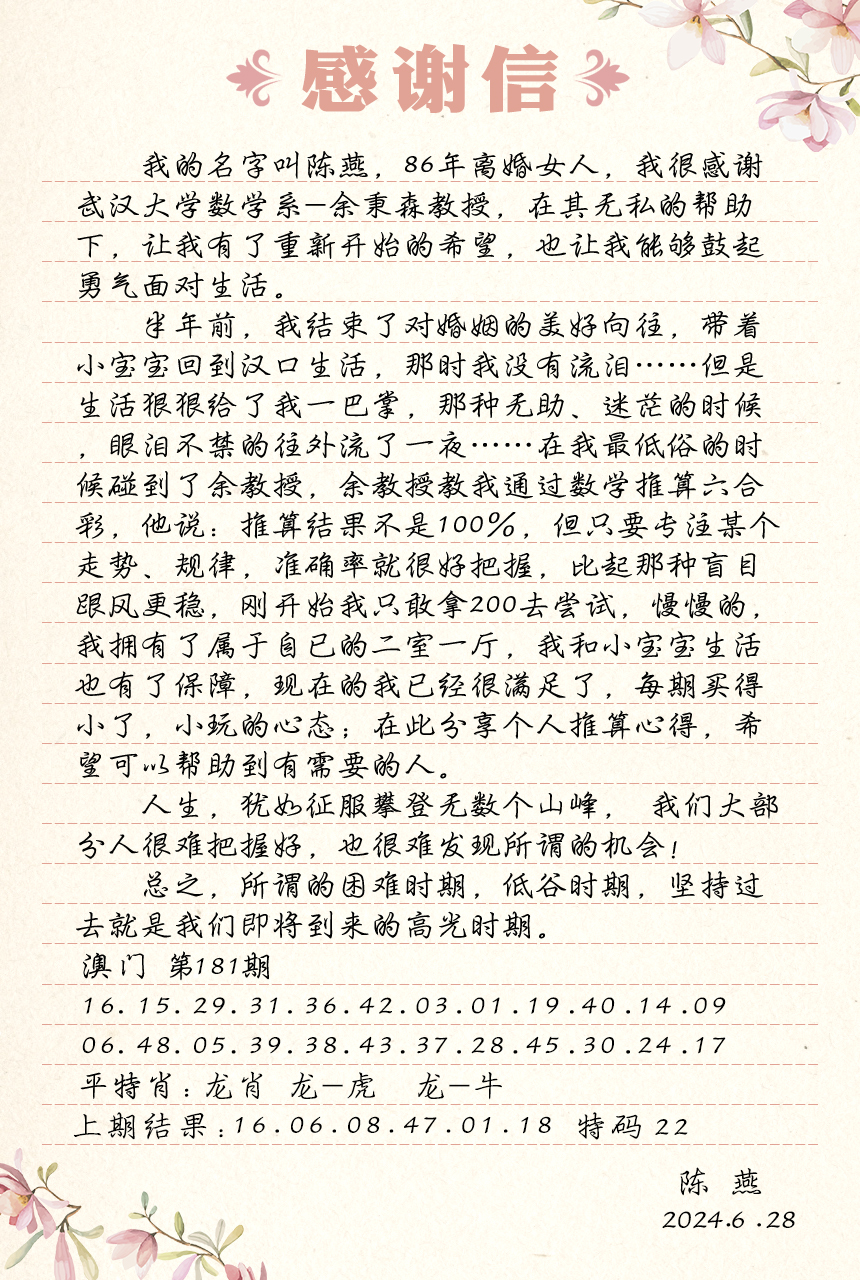 感谢信
我的名字叫陈燕，86年离婚女人，我很感谢
武汉大学数学系—余秉森教授，在其无私的帮助
下，让我有了重新开始的希望，也让我能够鼓起
勇气面对生活。
半年前，我结束了对婚姻的美好向往，带着
小宝宝回到汉口生活，那时我没有流泪……但是
生活狠狠给了我一巴掌，那种无助、迷茫的时候
，眼泪不禁的往外流了一夜……在我最低俗的时
候碰到了余教授，余教授教我通过数学推算六合
彩，他说：推算结果不是100%，但只要专注某个
走势、规律，准确率就很好把握，比起那种盲目
跟风更稳，刚开始我只敢拿200去尝试，慢慢的，
我拥有了属于自已的二室一厅，我和小宝宝生活
也有了保障，现在的我已经很满足了，每期买得
小了，小玩的心态；在此分享个人推算心得，希
望可以帮助到有需要的人。
人生，犹如征服攀登无数个山峰， 我们大部
分人很难把握好，也很难发现所谓的机会！
总之，所谓的困难时期，低谷时期，坚持过
去就是我们即将到来的高光时期。
澳门 第181期
16.15.29.31.36.42.03.01.19.40.14.09
06.48.05.39.38.43.37.28.45.30.24.17
平特肖：龙肖 龙—虎 龙—牛
上期结果：16.06.08.47.01.18 特码 22
陈 燕
2024.6.28